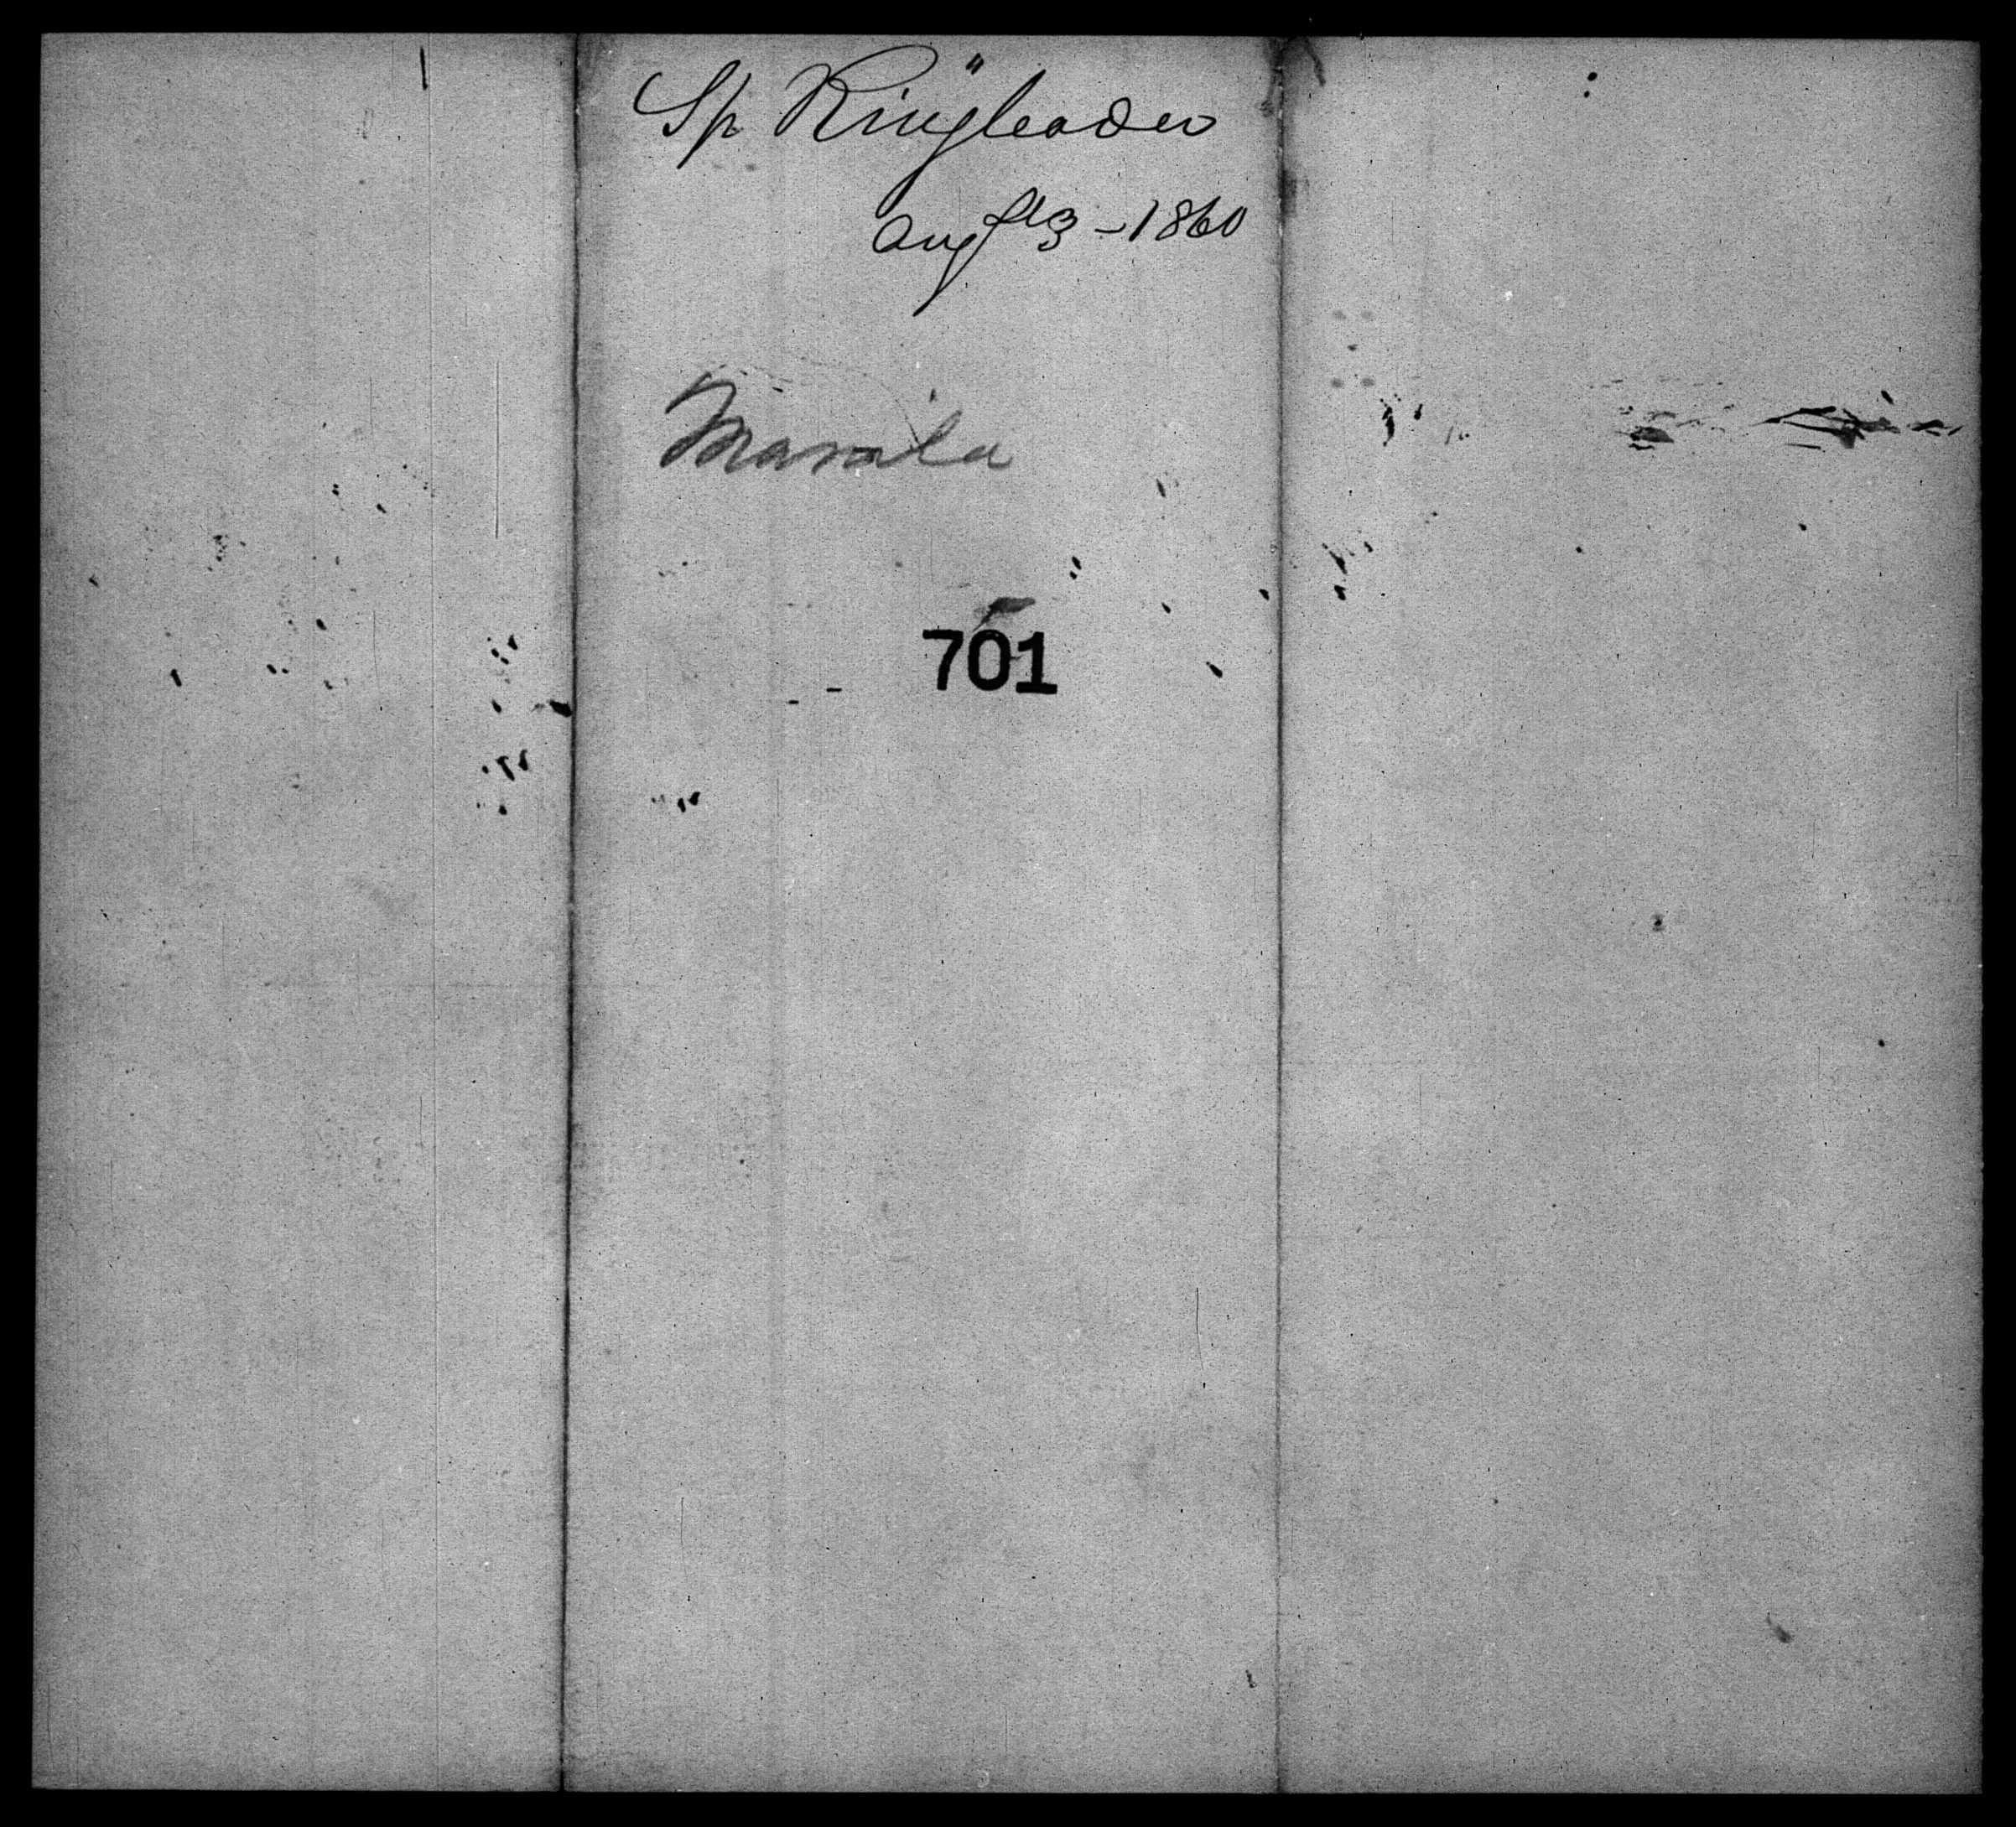 Sp Ringleader
Augst 3 - 1860
Manila
701